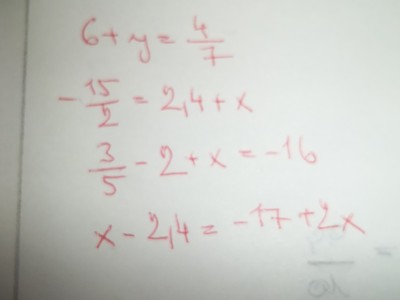 6+y=4/7
-15/2=2,4+x
3/5-2+x=-16
x-2,4=-17+2x